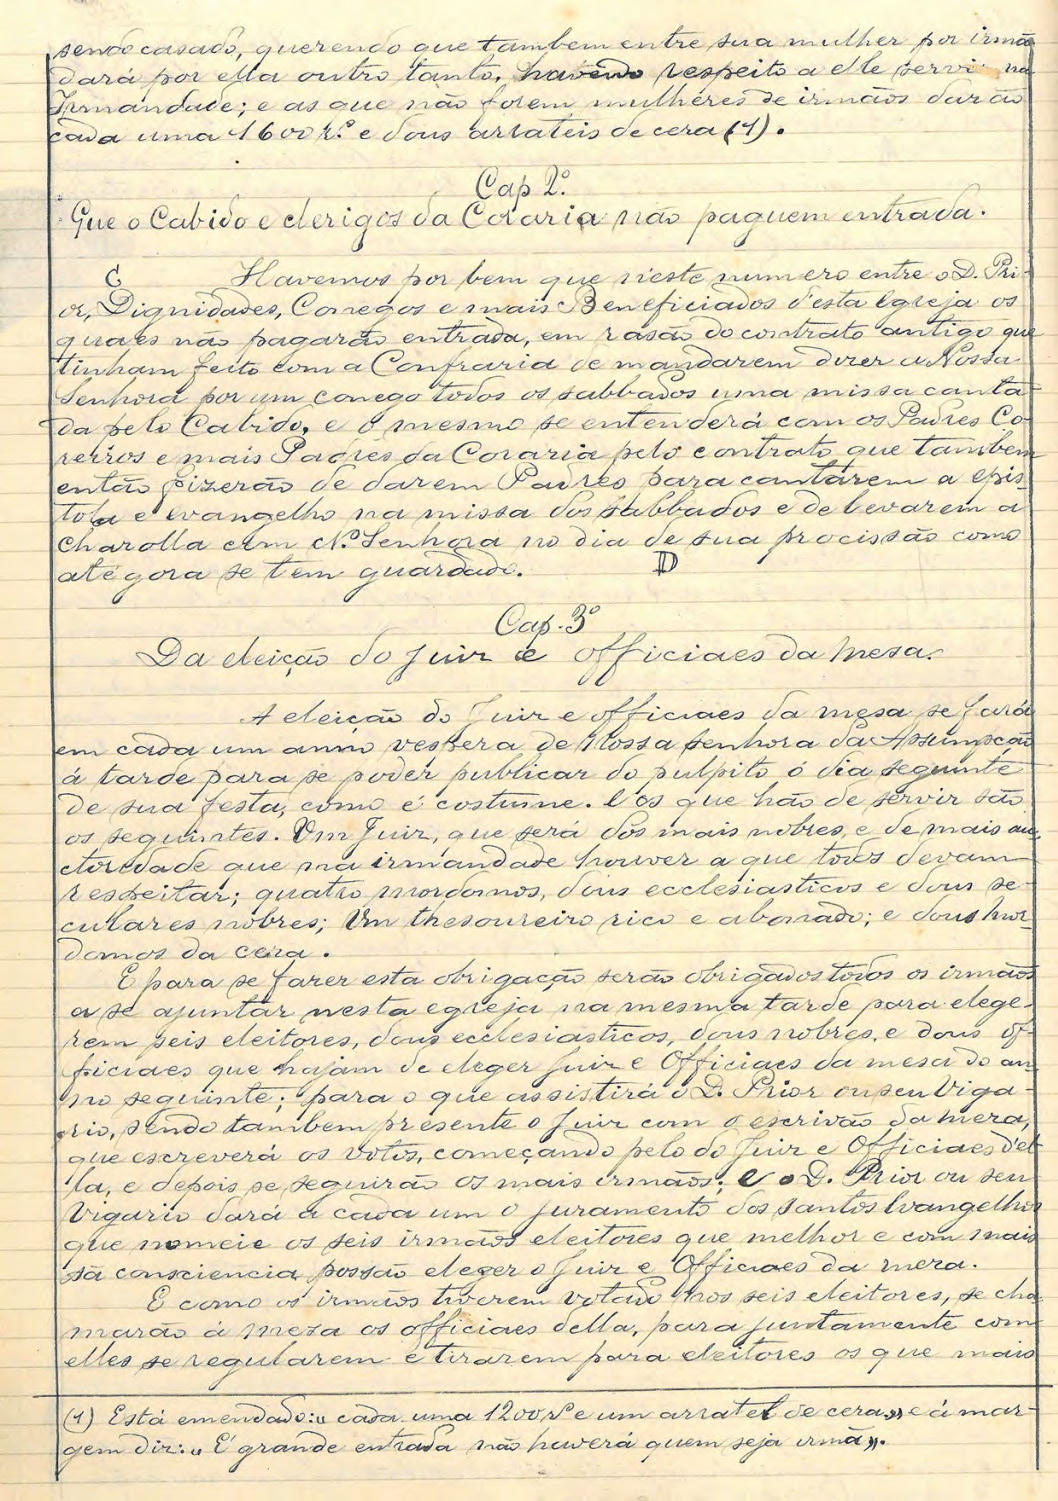 sendo casado, querendo que tambem entre sua mulher por irmã
dará por ella outro tanto, havendo respeito a elle servir na
Irmandade; e as que não forem mulhéres de irmãos darão
cada uma 1600 r.s e dous arrateis de cera (1).
Cap 2.º
Que o Cabido e clerigos da Coraria não paguem entrada.
C Havemos por bem que n'este numero entre o D. Pri-
or, Dignidades, Conegos e mais Beneficiados d'esta Egreja os
quaes não pagarão entrada, em rasão do contrato antigo que
tinham feito com a Confraria de mandarem dizer a Nossa
Senhora por um conego todos os sabbados uma missa canta-
da pelo Cabido, e o mesmo se entenderá com os Padres Co-
reiros e mais Padres da Coraria pelo contrato que tambem
então fizerão de darem Padres para cantarem a epis-
tola e evangelho na missa dos sabbados e de levarem a
Charolla com N.ª Senhora no dia de sua procissão como
até gora se tem guardado. D
Cap. 3º
Da eleição do Juiz e officiaes da Meza.
A eleição do Juiz e officiaes da mesa se fará
em cada um anno vespera de Nossa Senhora da Assumpção
á tarde para se poder publicar do pulpito ó dia seguinte
de sua festa, como é costume. E os que hão de servir são
os seguintes. Um Juiz, que será dos mais nobres, e de mais au-
ctoridade que na irmandade houver a que todos devam
respeitar; quatro mordomos, dous ecclesiasticos e dous se-
culares nobres; Um thesoureiro rico e abonado; e dous mor-
domos da cera.
E para se fazer esta obrigação serão obrigados todos os irmãos
a se ajuntar nesta egreja na mesma tarde para elege-
rem seis eleitores, dous ecclesiasticos, dous nobres, e dous of-
ficiaes que hajam de eleger Juiz e Officiaes da mesa do an-
no seguinte; para o que assistirá o D. Prior ou seu Viga-
rio, sendo tambem presente o Juiz com o escrivão da meza,
que escreverá os votos, começando pelo do Juiz e Officiaes d'el-
la, e depois se seguirão os mais irmãos; e o D. Prior ou seu
Vigario dará a cada um o juramento dos Santos Evangelhos
que nomeie os seis irmãos eleitores que melhor e com mais
sã consciencia possão eleger o Juiz e Officiaes da meza.
E como os irmãos tiverem votado nos seis eleitores, se cha-
marão á Meza os officiaes della, para juntamente com
elles se regularem e tirarem para eleitores os que mais
(1) Está emendado: « cada uma 1200 r.s e um arratel de cera» e á mar-
gem diz: « É grande entrada não haverá quem seja irmã».